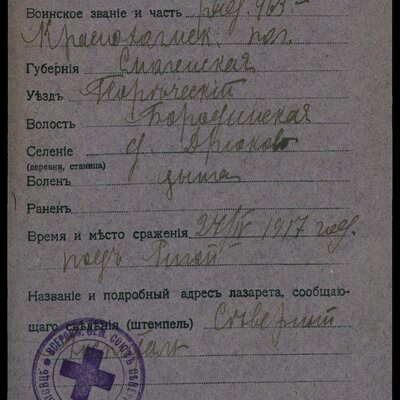 Воинское званіе и часть ряд. 463
Краснохолмск. пол.
Губернія Смоленская
Уѣздъ Порѣческій
Волость Бородинская
Селеніе д.
(деревня, станица)
Боленъ цынга
Раненъ
Время и мѣсто сраженія 27/IV 1917 год.
подъ Ригой
Названіе и подробный адресъ лазарета, сообщаю-
щаго свѣдѣнія (штемпель) Сѣверный
ВСЕРОС. ЗЕМ. СОЮЗЪ